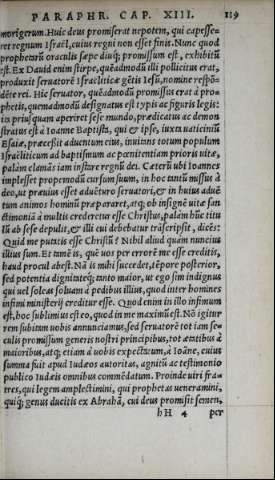 PARAPHR. CAP. XIII. 119
morigerum. Huic deus promiserat nepotem, qui capesse-
ret regnum Israël, cuius regni non esset finis. Nunc quod
prophetarũ oraculis sæpe diuq́; promissum est, exhibitũ
est. Ex Dauid enim stirpe, quẽadmodũ illi pollicitus erat,
produxit seruatorẽ Israëliticæ gẽtis Iesũ, nomine respõ-
dẽte rei. Hic seruator, quẽadmodũ promissus erat à pro-
phetis, quemadmodũ designatus est typis ac figuris legis:
ita priusquam aperiret sese mundo, prædicatus ac demon
stratus est à Ioanne Baptista, qui & ipse, iuxta uaticiniũ
Esaiæ, præcessit aduentum eius, inuitans totum populum
Israëliticum ad baptismum ac pœnitentiam prioris uitæ,
palàm clamãs iam instare regnũ dei. Cæterũ ubi Ioannes
implesset propemodũ cursum suum, in hoc tantũ missus à
deo, ut præuius esset aduẽturo seruatori, & in huius aduẽ
tum animos hominũ præpararet, atq; ob insignẽ uitæ san
ctimoniã à multis crederetur esse Christus, palàm hũc titu
lũ ab sese depulit, & illi cui debebatur trãscripsit, dicẽs:
Quid me putatis esse Christũ? Nihil aliud quàm nuncius
illius sum. Et tamẽ is, quẽ uos per errorẽ me esse creditis,
haud procul abest. Nã is mihi succedet, tẽpore posterior,
sed potentia dignitateq́; tanto maior, ut ego sim indignus
qui uel soleas soluam à pedibus illius, quod inter homines
infimi ministerij creditur esse. Quod enim in illo infimum
est, hoc sublimius est eo, quod in me maximũ est. Nõ igitur
rem subitam uobis annunciamus, sed seruatorẽ tot iam se-
culis promissum generis nostri principibus, tot ætatibus à
maioribus, atq; etiam à uobis expectatum, à Ioãne, cuius
summa fuit apud Iudæos autoritas, agnitũ ac testimonio
publico Iudæis omnibus commẽdatum. Proinde uiri fra-
tres, qui legem amplectimini, qui prophetas ueneramini,
quiq́; genus ducitis ex Abrahã, cui deus promisit semen,
hH 4 per